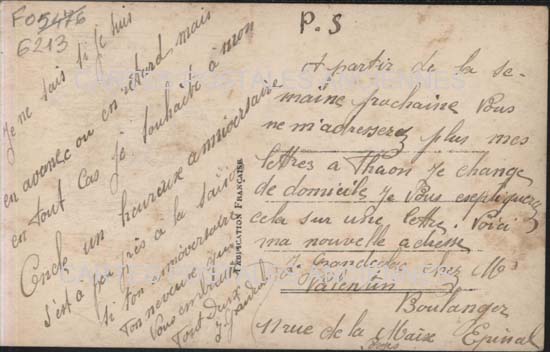 FO5476
6213
Je ne sais si je suis
en avance ou en retard mais
en tout cas je souhaite à mon
Oncle un heureux anniversaire
s'est a peu près a la saison
si ton anniversaire
ton neveux qui
Vous en
Tout
J. Grandcolas
FABRICATION FRANÇAISE
P.S
A partir de la se-
maine prochaine Vous
ne m'adresserez plus mes
lettres a Thaon Je change
de domicile Je Vous expliquerez
cela sur une lettre. Voici
ma nouvelle adresse
J. Grandcolas chez Mr
Valentin
Boulanger
rue de la Maix Epinal